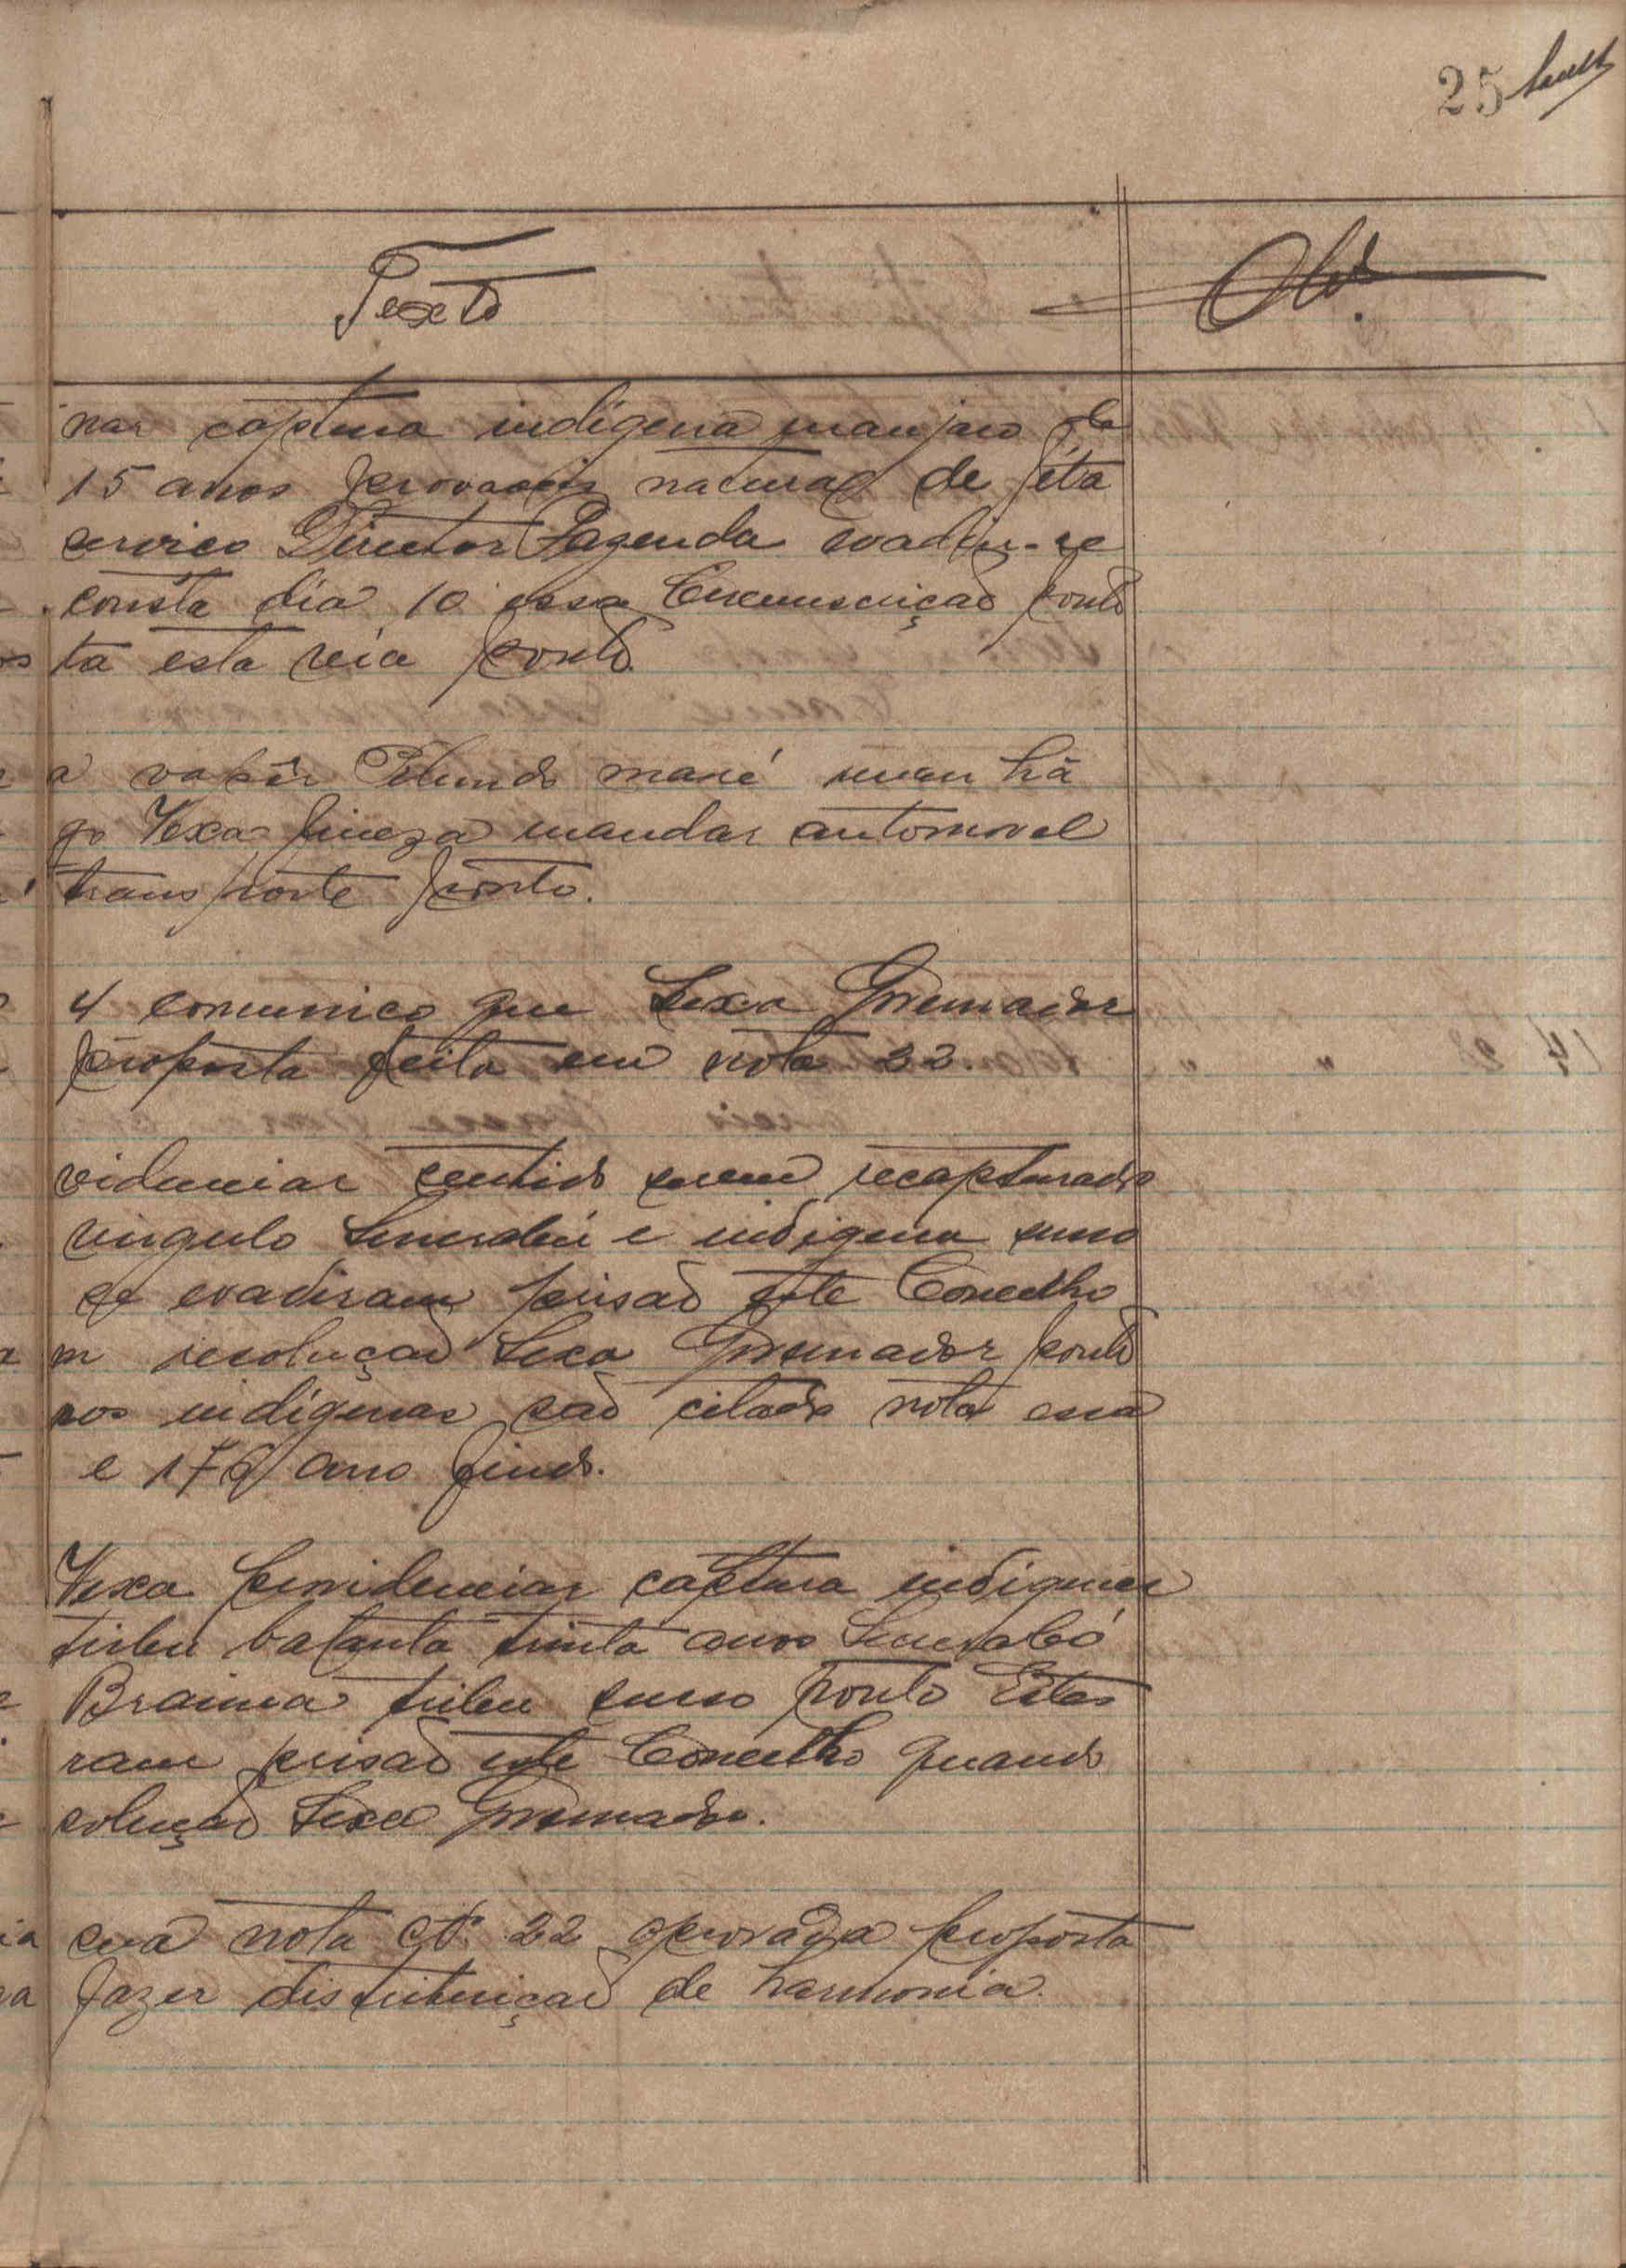 25
Texto
Obs.
nar captura indígena manjaco de
15 anos provaveis natural de Jéta
serviço Director Fazenda evadiu-se
consta dia 10 essa Circunscrição ponto
ta esta via ponto
a vapôr Pelundo maré manhã
go Vexa fineza mandar automovel
transporte ponto.
4 comunico que Sexa Governador
proposta feita em nota 22.
videnciar sentido serem recapturados
virgulo e indigena
se evadiram prisão este Concelho
m resolução Sexa Governador ponto
nos indígenas são citados nota essa
e 179 ano findo.
Vexa providenciar captura indigenas
tribu batanta trinta anos
Braima tribu ponto Estes
ram prisão este Concelho quando
solução Sexa Governador.
sua nota Nº 22 aprovada proposta
fazer distribuição de harmonia.